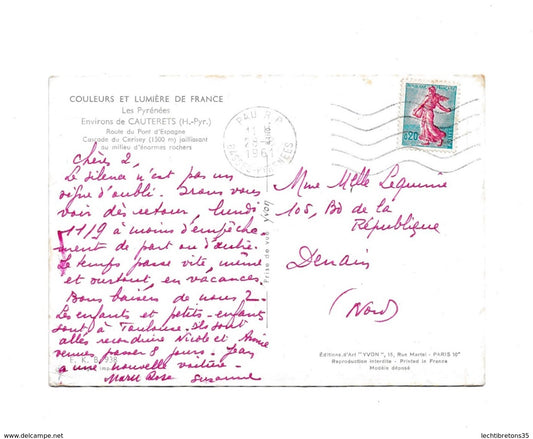 COULEURS ET LUMIÈRE DE FRANCE
Les Pyrénées
Environs de CAUTERETS (H.-Pyr.)
Route du Pont d'Espagne
Cascade du Cerisey (1300 m) jaillissant
au milieu d'énormes rochers
Chères 2,
Le silence n'est pas un
signe d'oubli. Irons vous
voir dès retour, lundi
11/9 à moins d'empêche-
ment de part ou d'autre.
Le temps passe vite, même
et surtout, en vacances.
Bons baisers de nous 2.
Les enfants et petits-enfants
sont à Toulouse. Ils sont
allés reconduire Nicole et
venues passer 8 jours. Jean
a une nouvelle voiture.
Marie Rose Susanne
E. K. B. 938
Prise de vue yvon
PAU R.P.
0,20
Mme Mlle Lequime
105, Bd de la
République
Denain
(Nord)
Éditions d'Art "YVON", 15, Rue Martel - PARIS 10e
Reproduction interdite - Printed in France
Modèle déposé
https://www.delcampe.net
lechtibretons35